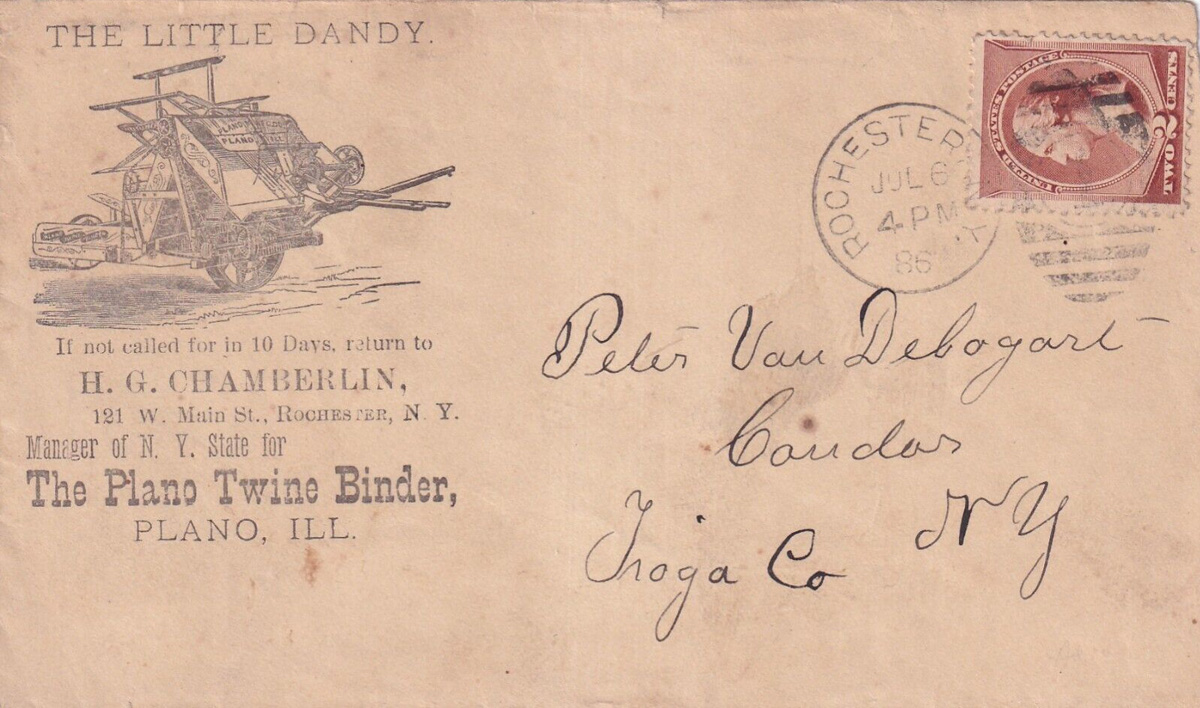 THE LITTLE DANDY.
PLANO
PLANO
If not called for in 10 Days, return to
H. G. CHAMBERLIN,
121 W. Main St., ROCHESTER, N. Y.
Manager of N. Y. State for
The Plano Twine Binder,
PLANO, ILL.
ROCHESTER
JUL 6
4 PM
86
UNITED STATES POSTAGE
2
TWO CENTS
Peter Van Debogart
Candor
Tioga Co N Y